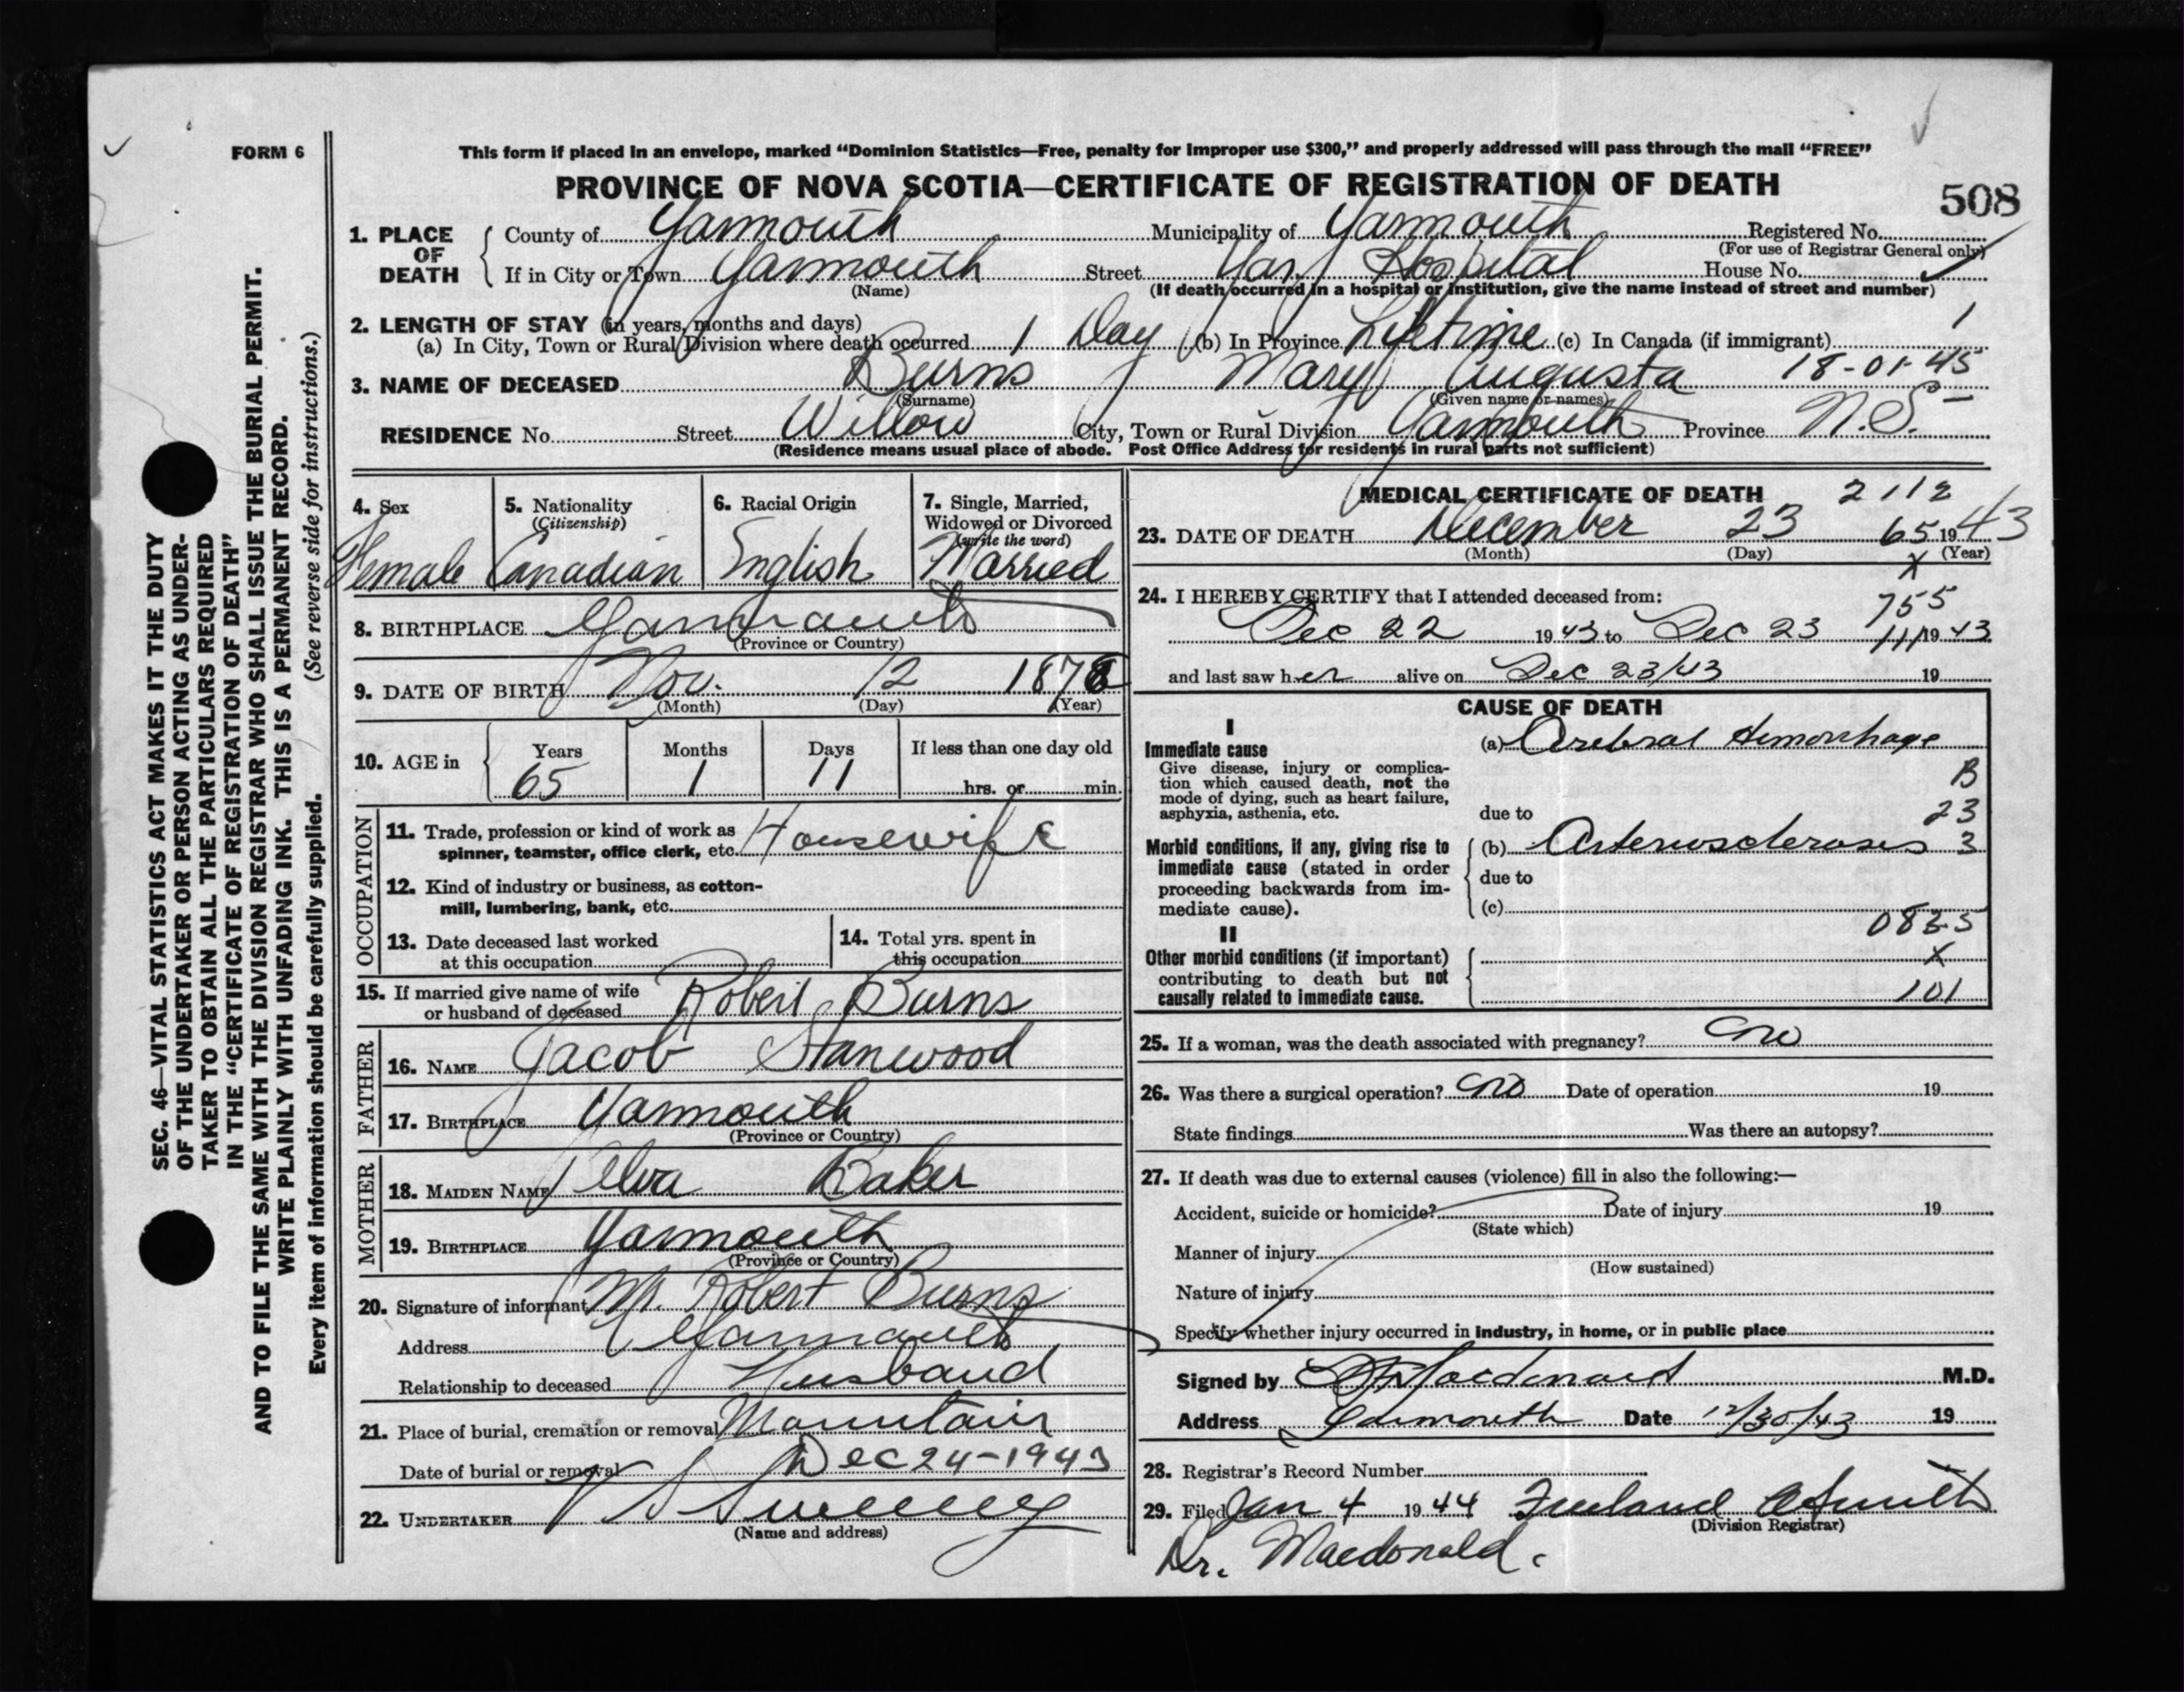 FORM 6
This form if placed in an envelope, marked “Dominion Statistics—Free, penalty for improper use $300,” and properly addressed will pass through the mail “FREE”
PROVINCE OF NOVA SCOTIA—CERTIFICATE OF REGISTRATION OF DEATH
508
1. PLACE OF DEATH { County of Yarmouth Municipality of Yarmouth Registered No.
(For use of Registrar General only)
If in City or Town Yarmouth Street Yar. Hospital House No.
(Name) (If death occurred in a hospital or institution, give the name instead of street and number)
2. LENGTH OF STAY (in years, months and days) 1
(a) In City, Town or Rural Division where death occurred 1 Day (b) In Province Lifetime (c) In Canada (if immigrant)
3. NAME OF DECEASED Burns Mary Augusta 18-01-45
(Surname) (Given name or names)
RESIDENCE No. Street Willow City, Town or Rural Division Yarmouth Province N.S.
(Residence means usual place of abode. Post Office Address for residents in rural parts not sufficient)
4. Sex 5. Nationality 6. Racial Origin 7. Single, Married,
(Citizenship) Widowed or Divorced
(write the word)
Female Canadian English Married
8. BIRTHPLACE Yarmouth
(Province or Country)
9. DATE OF BIRTH Nov. 12 1878
(Month) (Day) (Year)
10. AGE in { Years Months Days If less than one day old
65 1 11 hrs. or min.
OCCUPATION
11. Trade, profession or kind of work as
spinner, teamster, office clerk, etc. Housewife
12. Kind of industry or business, as cotton-
mill, lumbering, bank, etc.
13. Date deceased last worked 14. Total yrs. spent in
at this occupation this occupation
15. If married give name of wife
or husband of deceased Robert Burns
FATHER
16. NAME Jacob Stanwood
17. BIRTHPLACE Yarmouth
(Province or Country)
MOTHER
18. MAIDEN NAME Baker
19. BIRTHPLACE Yarmouth
(Province or Country)
20. Signature of informant Mr. Robert Burns
Address Yarmouth
Relationship to deceased Husband
21. Place of burial, cremation or removal Mountain
Date of burial or removal Dec 24-1943
22. UNDERTAKER V S Sweeney
(Name and address)
MEDICAL CERTIFICATE OF DEATH 2112
23. DATE OF DEATH December 23 65 1943
(Month) (Day) (Year)
X
24. I HEREBY CERTIFY that I attended deceased from: 755
Dec 22 1943 to Dec 23 111 1943
and last saw her alive on Dec 23/43 19
CAUSE OF DEATH
I
Immediate cause (a) Cerebral Hemorrhage
Give disease, injury or complica-
tion which caused death, not the B
mode of dying, such as heart failure,
asphyxia, asthenia, etc. due to 23
Morbid conditions, if any, giving rise to (b) Arteriosclerosis 3
immediate cause (stated in order
proceeding backwards from im- due to
mediate cause). (c)
083-5
II
Other morbid conditions (if important) X
contributing to death but not
causally related to immediate cause. 101
25. If a woman, was the death associated with pregnancy? no
26. Was there a surgical operation? no Date of operation 19
State findings Was there an autopsy?
27. If death was due to external causes (violence) fill in also the following:—
Accident, suicide or homicide? Date of injury 19
(State which)
Manner of injury
(How sustained)
Nature of injury
Specify whether injury occurred in industry, in home, or in public place
Signed by Macdonald M.D.
Address Yarmouth Date 12/30/43 19
28. Registrar's Record Number
29. Filed Jan 4 1944 Freeland A Smith
(Division Registrar)
Dr. Macdonald.
SEC. 46—VITAL STATISTICS ACT MAKES IT THE DUTY
OF THE UNDERTAKER OR PERSON ACTING AS UNDER-
TAKER TO OBTAIN ALL THE PARTICULARS REQUIRED
IN THE “CERTIFICATE OF REGISTRATION OF DEATH”
AND TO FILE THE SAME WITH THE DIVISION REGISTRAR WHO SHALL ISSUE THE BURIAL PERMIT.
WRITE PLAINLY WITH UNFADING INK. THIS IS A PERMANENT RECORD.
Every item of information should be carefully supplied. (See reverse side for instructions.)